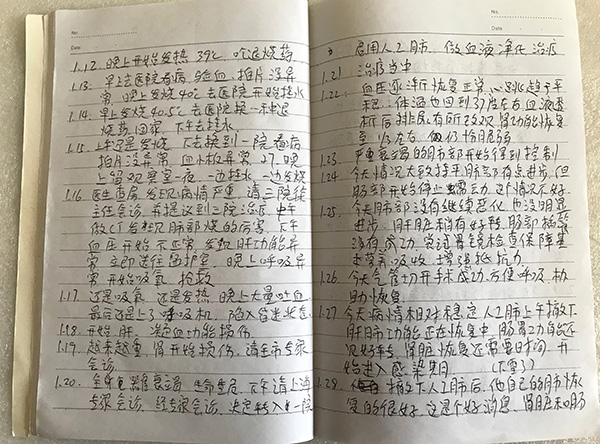 No.
Date
1.12. 晚上开始发热 39℃ 吃退烧药
1.13. 早上去医院看病 验血、拍片没异
常, 晚上发烧40℃ 去医院开始挂水
1.14. 早上发烧40.5℃ 去医院换一种退
烧药 回家, 下午去挂水,
1.15. 上午还是发烧, 下去换到一院看病
拍片没异常, 血小板异常 27. 晚
上留观察室一夜 一边挂水, 一边发烧
1.16. 医生查房 发现病情严重 请三院
主任会诊, 并提议到三院治疗, 中午
做CT发现肺部烧的厉害, 下午
血压开始不正常, 发现肝功能异
常 立即送往监护室, 晚上呼吸异
常 开始吸氧 抢救
1.17. 还是吸氧, 还是发热, 晚上大量吐血
最后还是上了呼吸机,
1.18. 开始肝、凝血功能损伤
1.19. 越来越重, 肾开始损伤, 请全市专家
会诊,
1.20. 下午请上海
专家会诊, 经专家会诊, 决定转入一院
No.
Date
启用人工肺, 做血液净化治疗
1.21 治疗当中
1.22. 血压逐渐恢复正常, 心跳趋于平
稳, 体温也回到37度左右 血液透
析后排尿有所改观 肾功能恢复
至1/3左右, 仍
1.23 严重衰竭的肺部开始得到控制
1.24 今天情况大致持平 肺部有点进步, 但
肠部开始停止蠕动, 这个情况不好.
1.25. 今天肺部没有继续恶化, 也没明显
进步, 肝脏稍有好转, 肠部
没有蠕动, 尝试胃镜检查保障
营养吸收 增强抵抗力
1.26. 今天气管切开手术成功, 方便呼吸机
助恢复
1.27 今天病情相对稳定 人工肺上午撤下
肝肺功能正在恢复中, 肠胃功能还
没好转, 肾脏恢复还需要时间, 开
始进入感染期
1.28. 撤下人工肺后, 他自己的肺恢
复的很好, 这是个好消息, 肾脏和肠